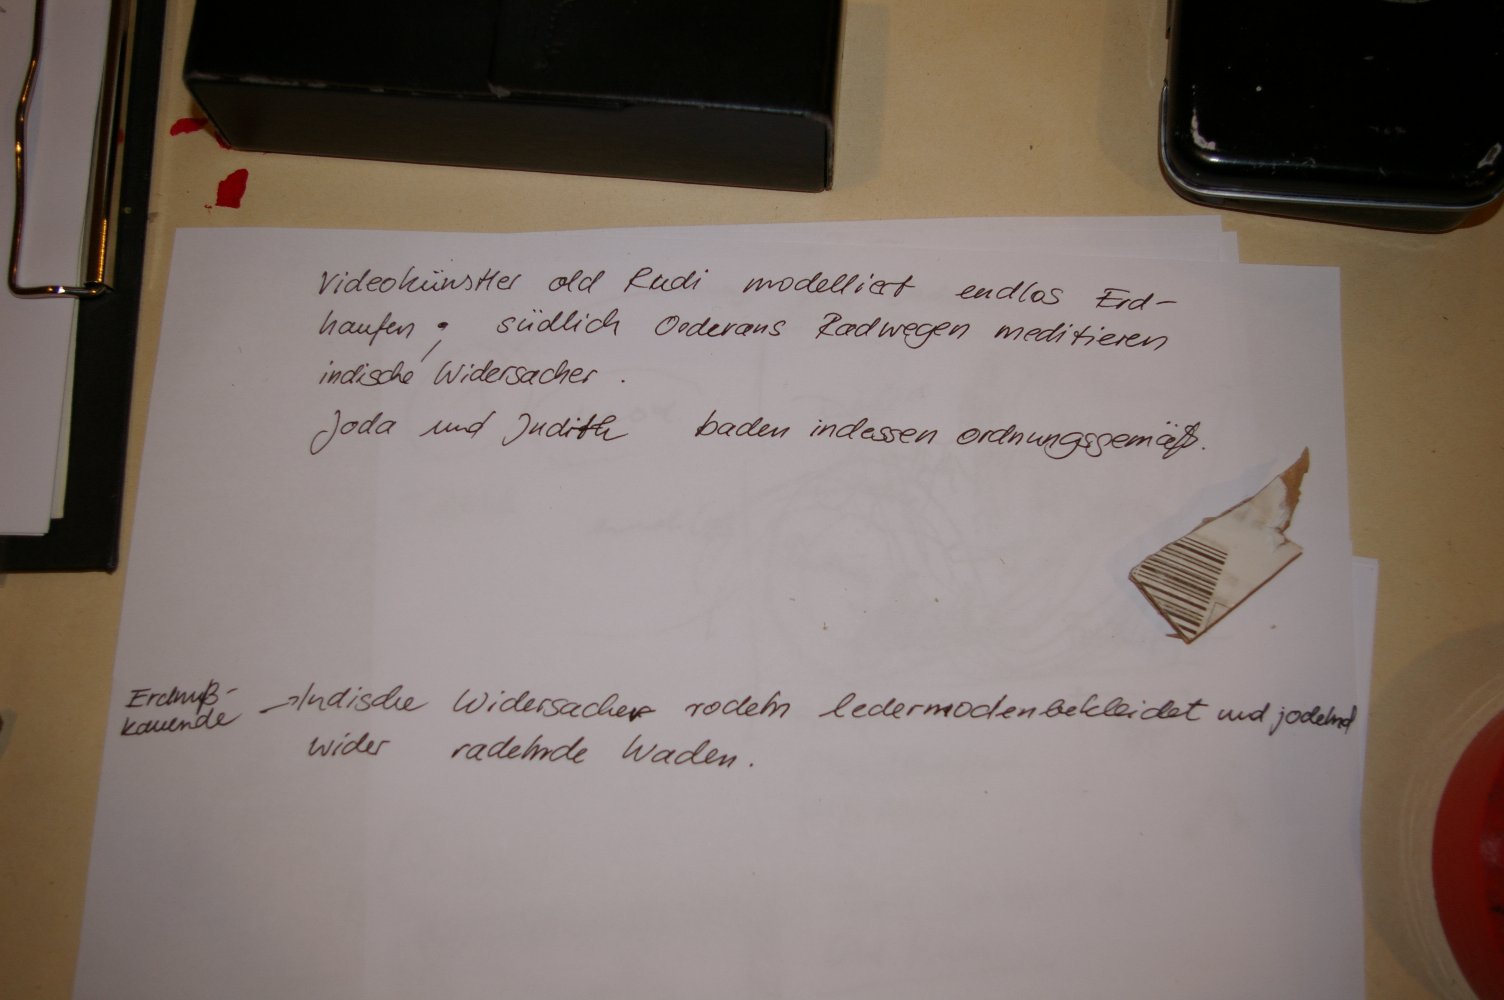 Videokünstler old Rudi modelliert endlos Erd-
haufen; südlich Ooderans Radwegen meditieren
indische Widersacher.
Joda und Judith baden indessen ordnungsgemäß.
Erdnuß-
kauende
→ Indische Widersacher rodeln ledermodenbekleidet und jodelnd
wider radelnde Waden.